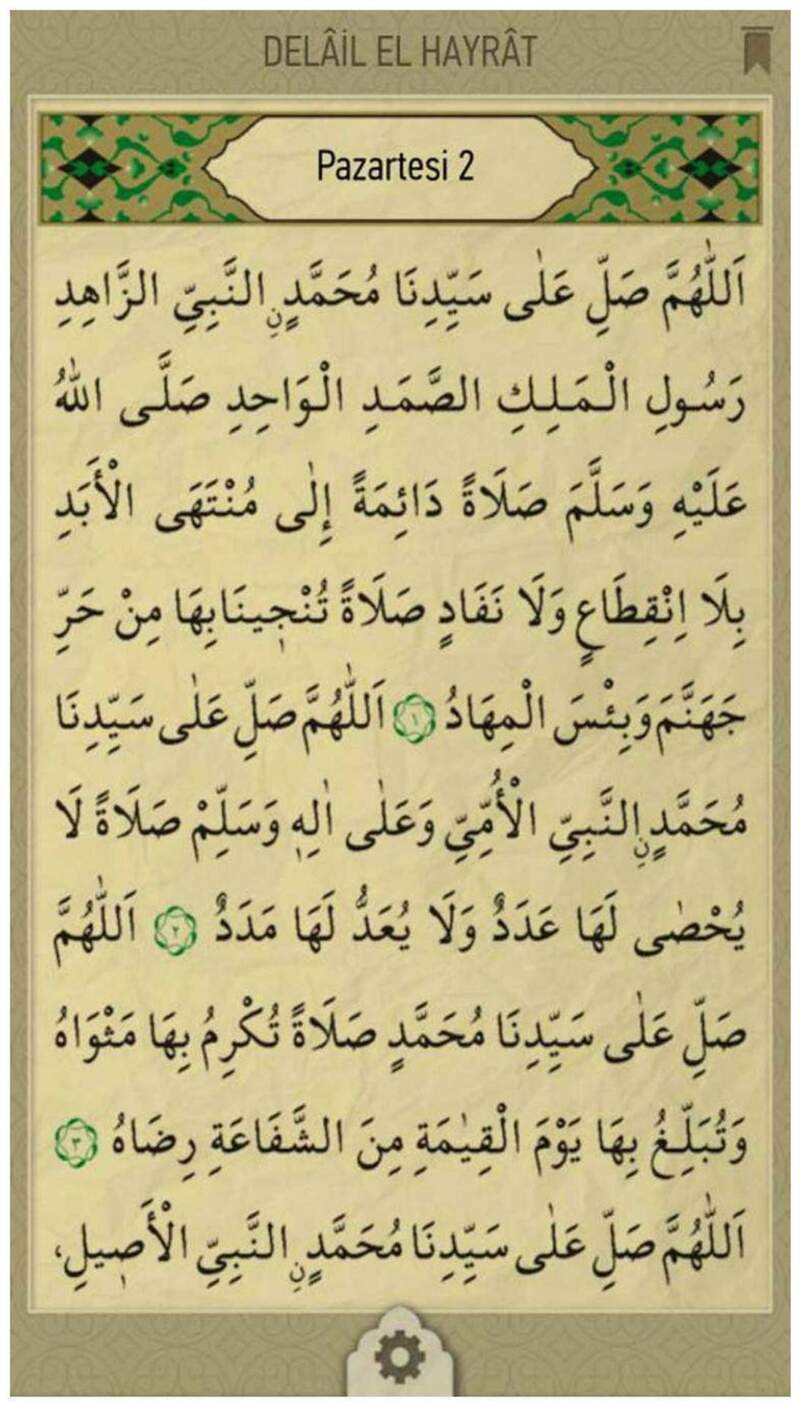 DELÂİL EL HAYRÂT
Pazartesi 2
اَللّٰهُمَّ صَلِّ عَلٰى سَيِّدِنَا مُحَمَّدٍنِ النَّبِيِّ الزَّاهِدِ
رَسُولِ الْمَلِكِ الصَّمَدِ الْوَاحِدِ صَلَّى اللّٰهُ
عَلَيْهِ وَسَلَّمَ صَلَاةً دَائِمَةً إِلٰى مُنْتَهَى الْأَبَدِ
بِلَا اِنْقِطَاعٍ وَلَا نَفَادٍ صَلَاةً تُنْجٖينَابِهَا مِنْ حَرِّ
جَهَنَّمَ وَبِئْسَ الْمِهَادُ ١ اَللّٰهُمَّ صَلِّ عَلٰى سَيِّدِنَا
مُحَمَّدٍنِ النَّبِيِّ الْأُمِّيِّ وَعَلٰى اٰلِهٖ وَسَلِّمْ صَلَاةً لَا
يُحْصٰى لَهَا عَدَدٌ وَلَا يُعَدُّ لَهَا مَدَدٌ ٢ اَللّٰهُمَّ
صَلِّ عَلٰى سَيِّدِنَا مُحَمَّدٍ صَلَاةً تُكْرِمُ بِهَا مَثْوَاهُ
وَتُبَلِّغُ بِهَا يَوْمَ الْقِيٰمَةِ مِنَ الشَّفَاعَةِ رِضَاهُ ٣
اَللّٰهُمَّ صَلِّ عَلٰى سَيِّدِنَا مُحَمَّدٍنِ النَّبِيِّ الْأَصٖيلِ،